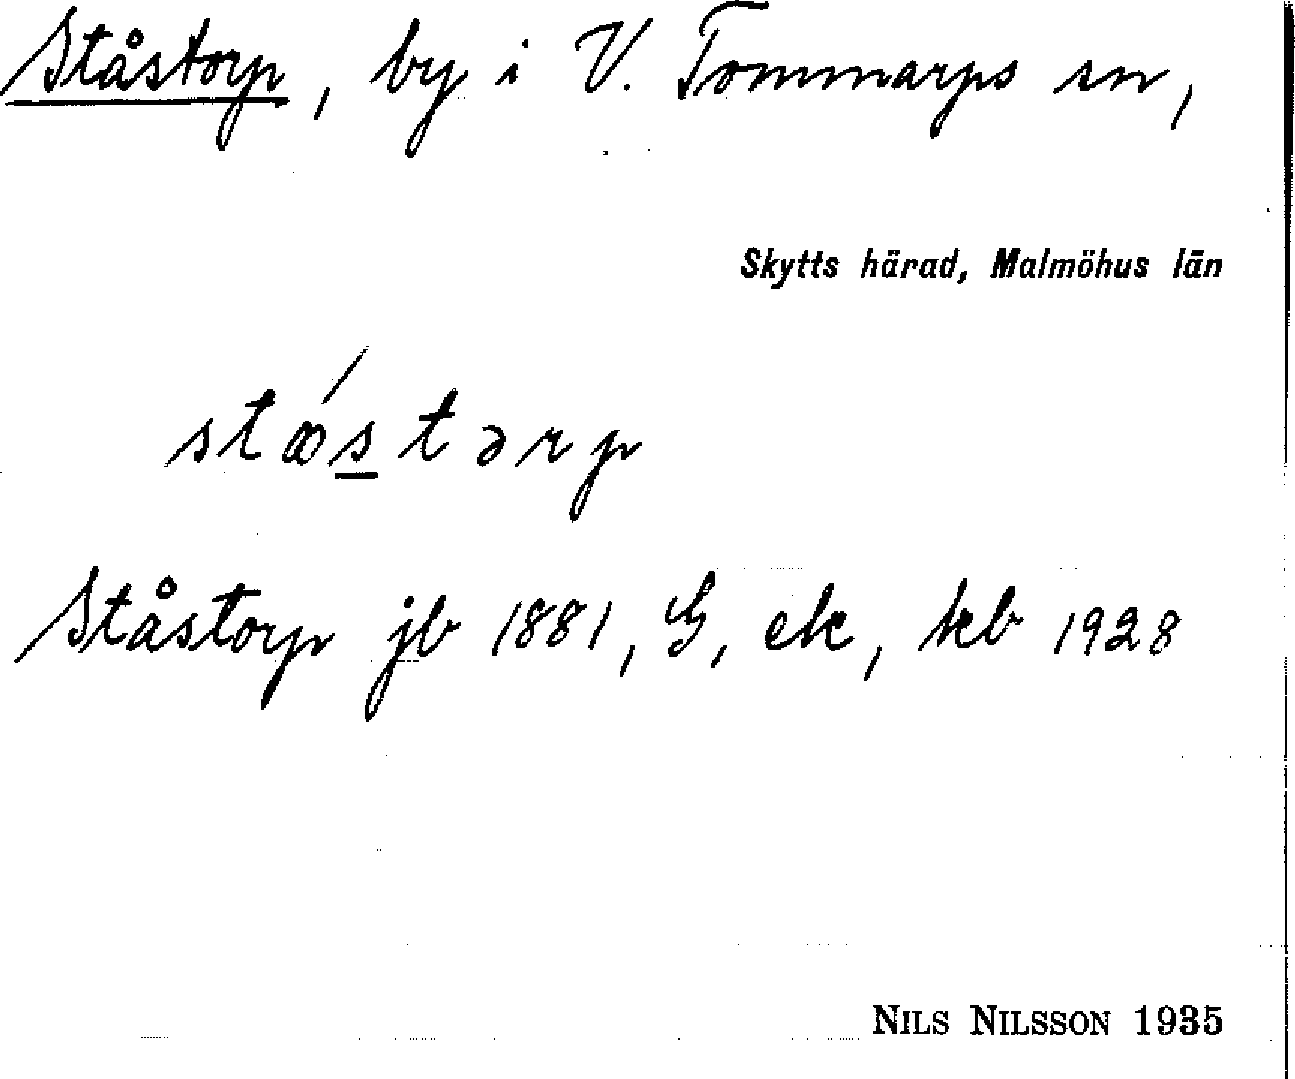 Ståstorp, by i V. Tommarps sn,
Skytts härad, Malmöhus län
stǿstərp
Ståstorp jb 1881, G, ek, kb 1928
NILS NILSSON 1935